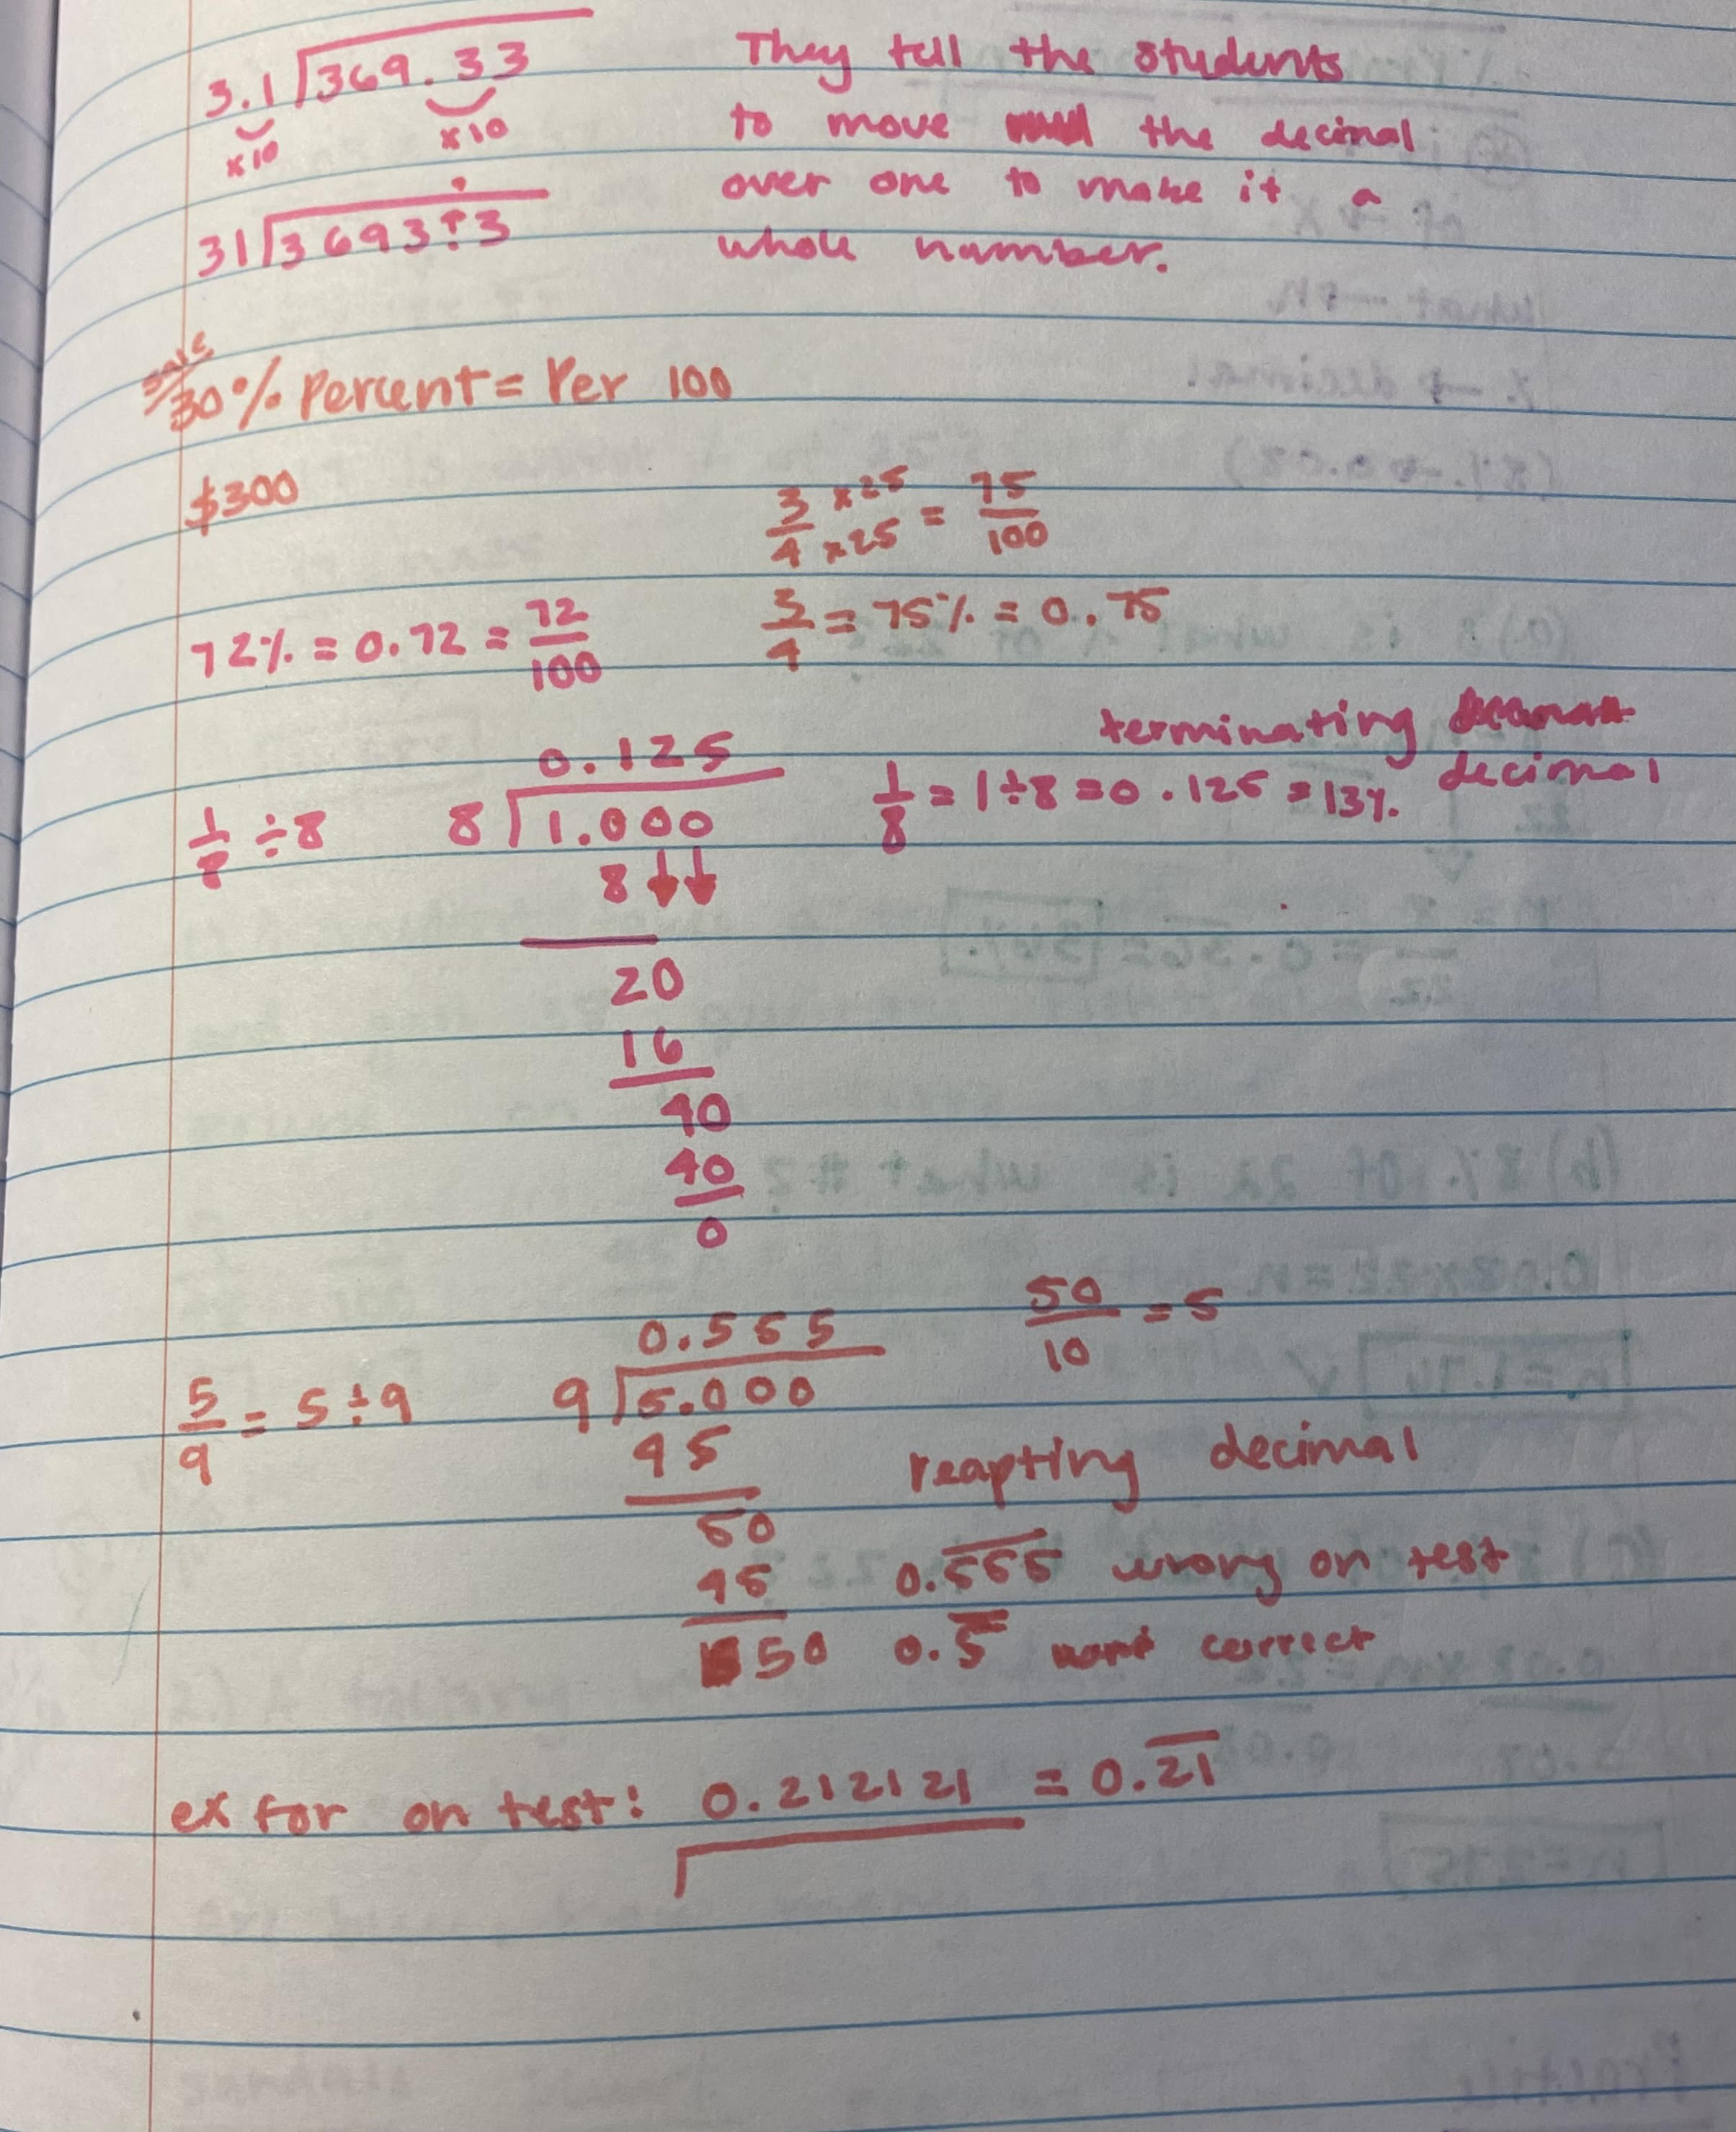 3.1 369.33 They tell the students
x10 x10 to move the decimal
over one to make it a
31 3693.3 whole number.
sale
30% Percent = Per 100
$300 3/4 x25 x25 = 75/100
72% = 0.72 = 72/100 3/4 = 75% = 0.75
terminating
0.125 decimal
1/8 ÷8 8 1.000 1/8 = 1÷8 = 0.125 = 13%
8
20
16
40
40
0
0.555 50/10 = 5
5/9 = 5÷9 9 5.000
45 reapting decimal
50
45 0.5̅5̅5̅ wrong on test
50 0.5̅ correct
ex for on test: 0.212121 = 0.2̅1̅